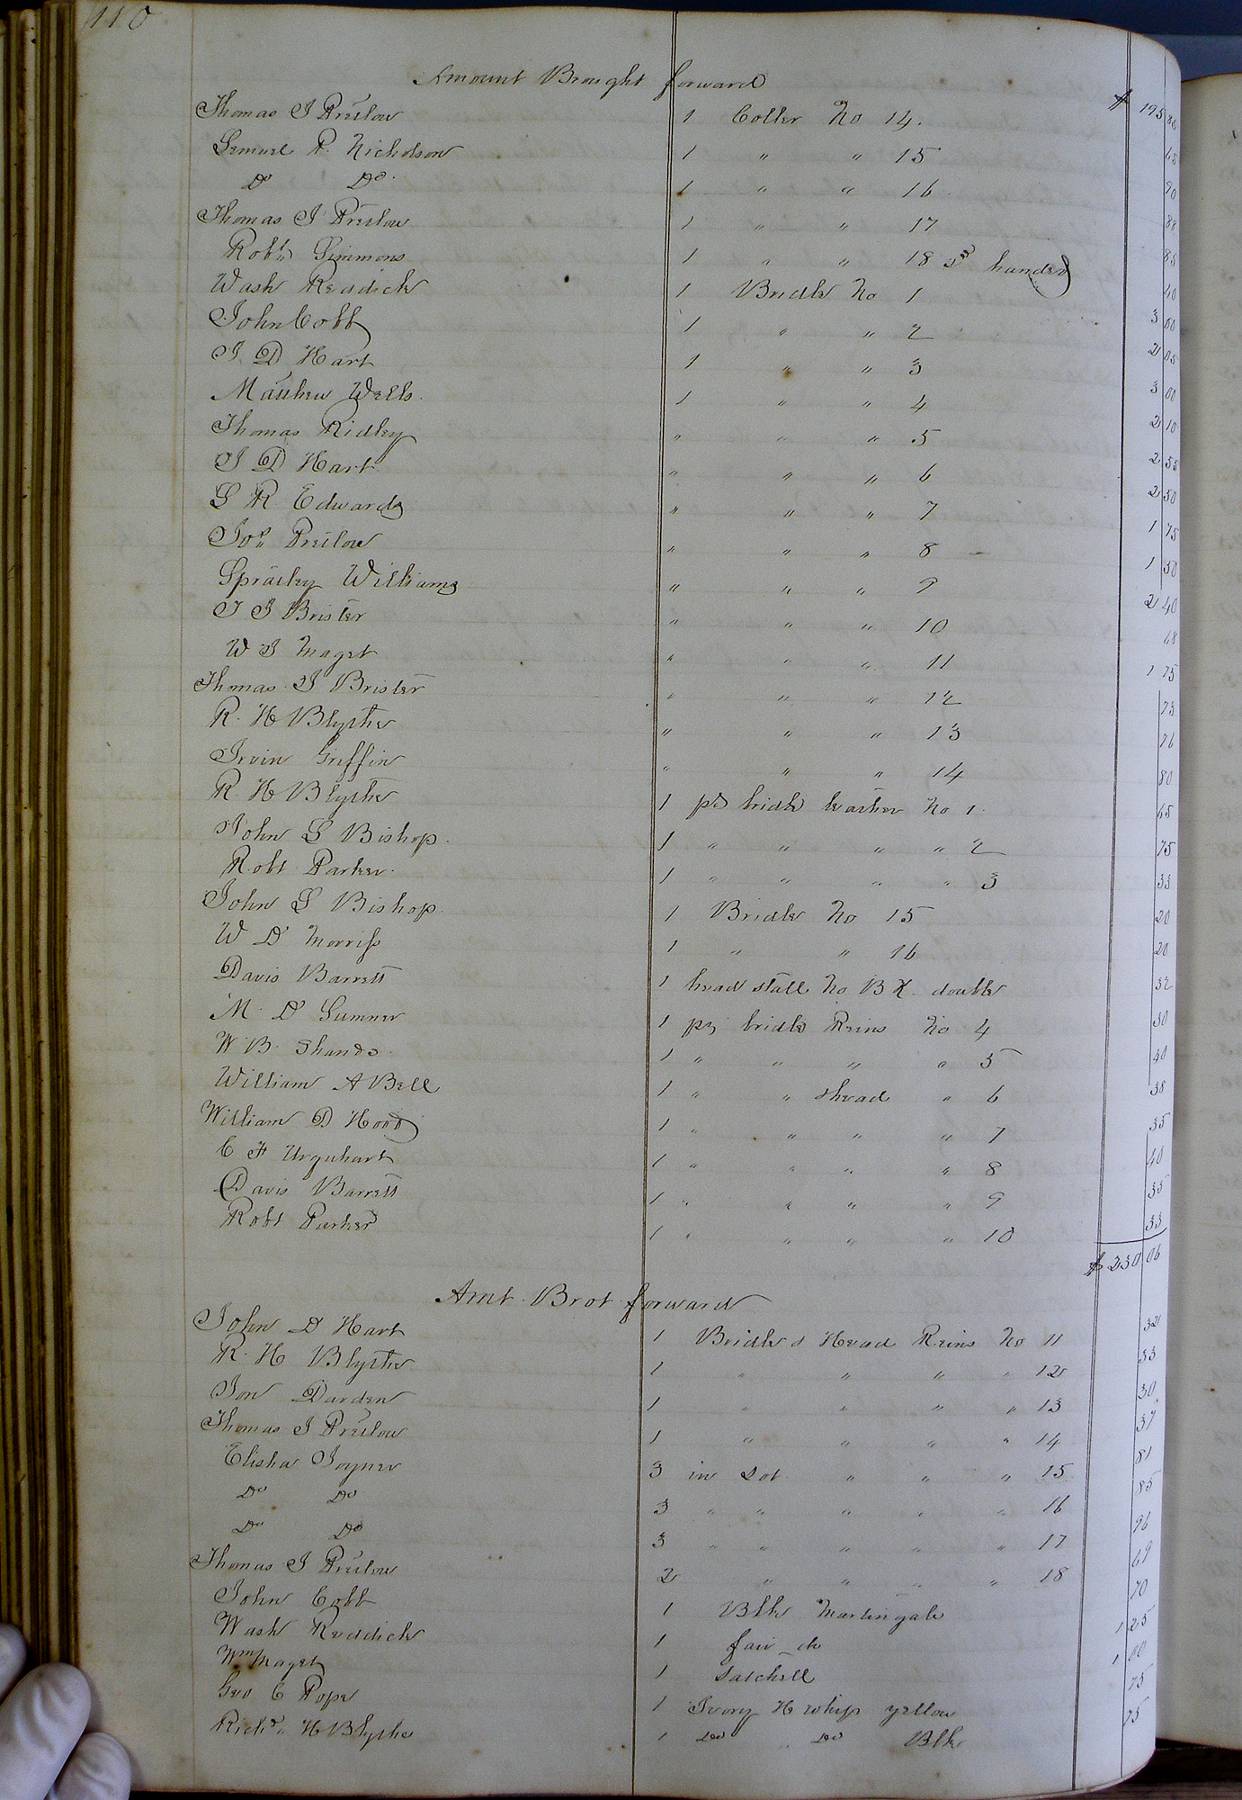 110
Amount Brought forward $ 195
Thomas J Pretlow 1 Coller No 14.
Samuel P. Nicholson 1 " " 15
Do Do. 1 " " 16 90
Thomas J Pretlow 1 " " 17 88
Robt Simmons 1 " " 18 2nd handed 85
Wash Reddick 1 Bridle No 1 40
John Cobb 1 " " 2 3 00
J. D Hart 1 " " 3 2 05
Matthew Wells. 1 " " 4 3 00
Thomas Ridley " " " 5 2 10
J D Hart " " " 6 2 55
S R Edwards " " " 7 2 50
Jos Pretlow " " " 8 1 75
Spratley Williams " " " 9 1 50
T J Brister " " " 10 2 40
W J Maget " " " 11 68
Thomas J Brister " " " 12 1 75
R. H Blythe " " " 13 73
Irvin Griffin " " " 14 76
R H Blythe 1 ps bridle leather No 1. 80
John S Bishop. 1 " " " " 2 65
Robt Parker. 1 " " " " 3 75
John S Bishop 1 Bridle No 15 33
W D Morriss 1 " " 16 20
Davis Barrett 1 head stall No BX double 20
M. D Sumner 1 pr bridle Reins No 4 32
W. B. Shands. 1 " " " " 5 30
William A Bell 1 " " Thread " 6 40
William D Hood 1 " " " " 7 38
C F Urquhart 1 " " " " 8 35
Davis Barrett 1 " " " " 9 40
Robt Parker 1 " " " " 10 35
33
$ 230 06
Amt. Brot forward
John D Hart 1 Bridle & Head Reins No 11 32
R. H Blythe 1 " " " " 12 33
Jon Darden 1 " " " " 13 30
Thomas J Pretlow 1 " " " " 14 37
Elisha Joyner 3 in Lot " " " 15 81
Do Do 3 " " " " " 16 85
Do Do 3 " " " " " 17 96
Thomas J Pretlow 2 " " " " 18 69
John Cobb 1 Blk Martingale 70
Wash Reddick 1 fair do 1 25
Wm Maget 1 Satchell 1 00
Geo C Pope 1 Ivory H whip yellow 75
Richd H Blythe 1 Do " Do Blk 75